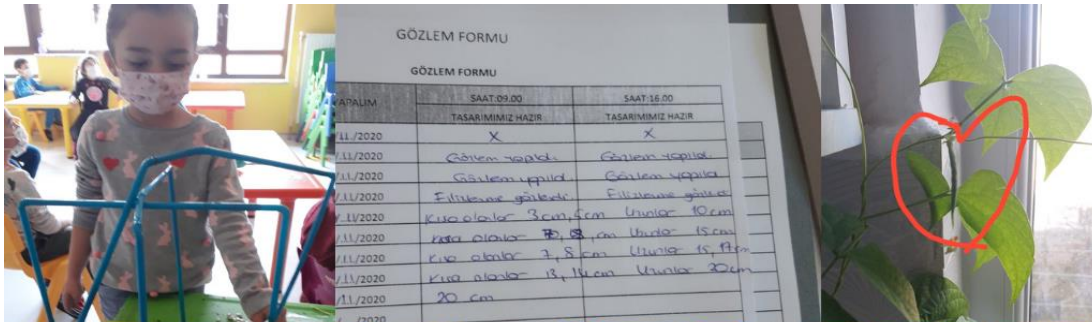 GÖZLEM FORMU
GÖZLEM FORMU
YAPALIM SAAT:09.00 SAAT:16.00
TASARIMIMIZ HAZIR TASARIMIMIZ HAZIR
/11/2020 X X
/11/2020 Gözlem yapıldı. Gözlem yapıldı.
/11/2020 Gözlem yapıldı Gözlem yapıldı
/11/2020 Filizlenme gözlendi Filizlenme gözlendi
/11/2020 Kısa olanlar 3 cm, 5 cm Uzunlar 10 cm
/11/2020 Kısa olanlar cm Uzunlar 15 cm
/11/2020 Kısa olanlar 7, 8 cm Uzunlar 15, 17 cm
/11/2020 Kısa olanlar 13, 14 cm Uzunlar 20 cm
/11/2020 20 cm
/2020